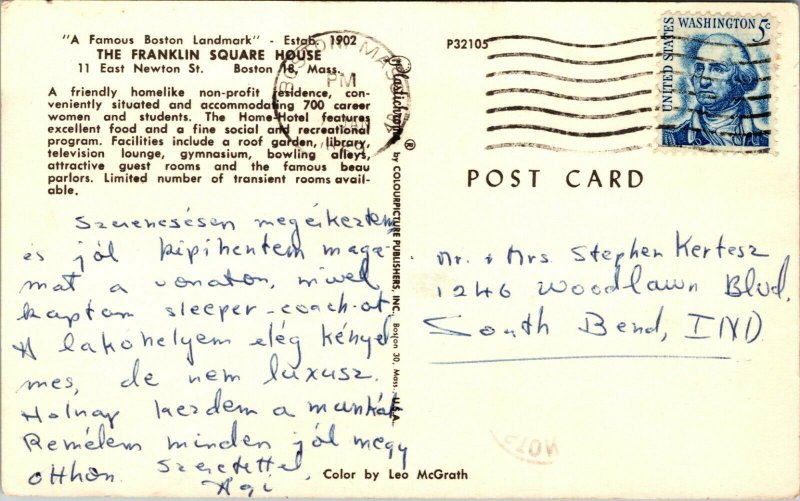 "A Famous Boston Landmark" - Estab. 1902
THE FRANKLIN SQUARE HOUSE
11 East Newton St. Boston 18, Mass.
A friendly homelike non-profit residence, con-
veniently situated and accommodating 700 career
women and students. The Home-Hotel features
excellent food and a fine social and recreational
program. Facilities include a roof garden, library,
television lounge, gymnasium, bowling alleys,
attractive guest rooms and the famous beau
parlors. Limited number of transient rooms avail-
able.
Szerencsésen megérkeztem
és jól kipihentem maga-
mat a vonaton, mivel
kaptam sleeper-coach-ot
A lakóhelyem elég kényel
mes, de nem luxusz.
Holnap kezdem a munkát
Remélem minden jól megy
otthon. Szeretettel,
Ági
BOSTON MASS
PM
Plastichrome ® by COLOURPICTURE PUBLISHERS, INC. Boston 30, Mass. U.S.A.
P32105
UNITED STATES
WASHINGTON 5c
POST CARD
Mr. + Mrs. Stephen Kertesz
1246 Woodlawn Blvd.
South Bend, IND
Color by Leo McGrath